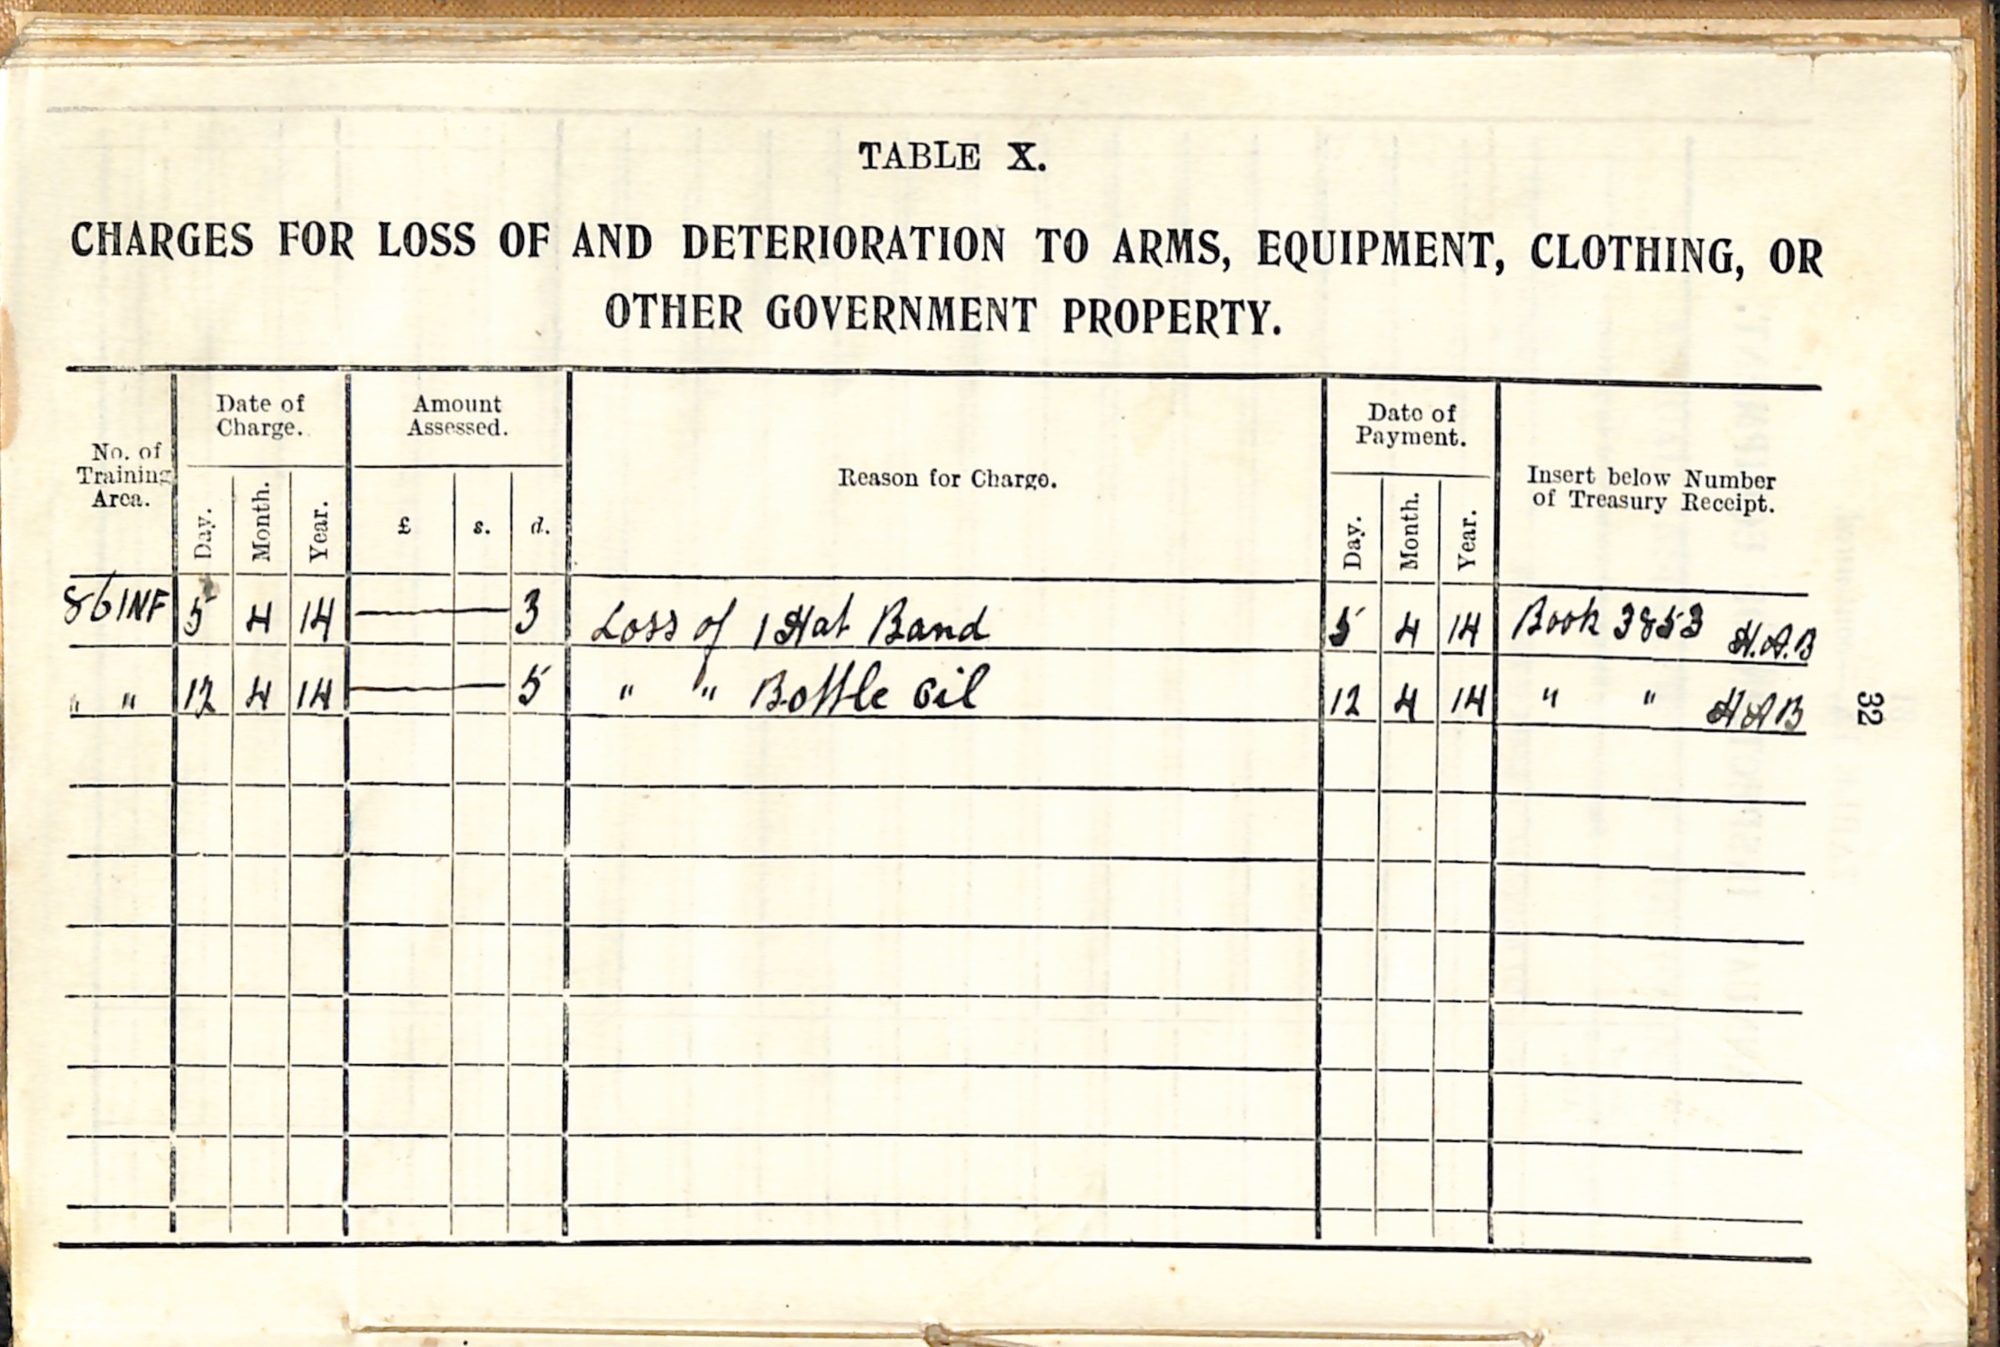 TABLE X.
CHARGES FOR LOSS OF AND DETERIORATION TO ARMS, EQUIPMENT, CLOTHING, OR
OTHER GOVERNMENT PROPERTY.
No. of Training Area. | Date of Charge. | Amount Assessed. | Reason for Charge. | Date of Payment. | Insert below Number of Treasury Receipt.
Day. Month. Year. £ s. d. Day. Month. Year.
86 INF 5 4 14 — 3 Loss of 1 Hat Band 5 4 14 Book 3853 H.A.B
" " 12 4 14 — 5 " " Bottle Oil 12 4 14 " " HAB
32